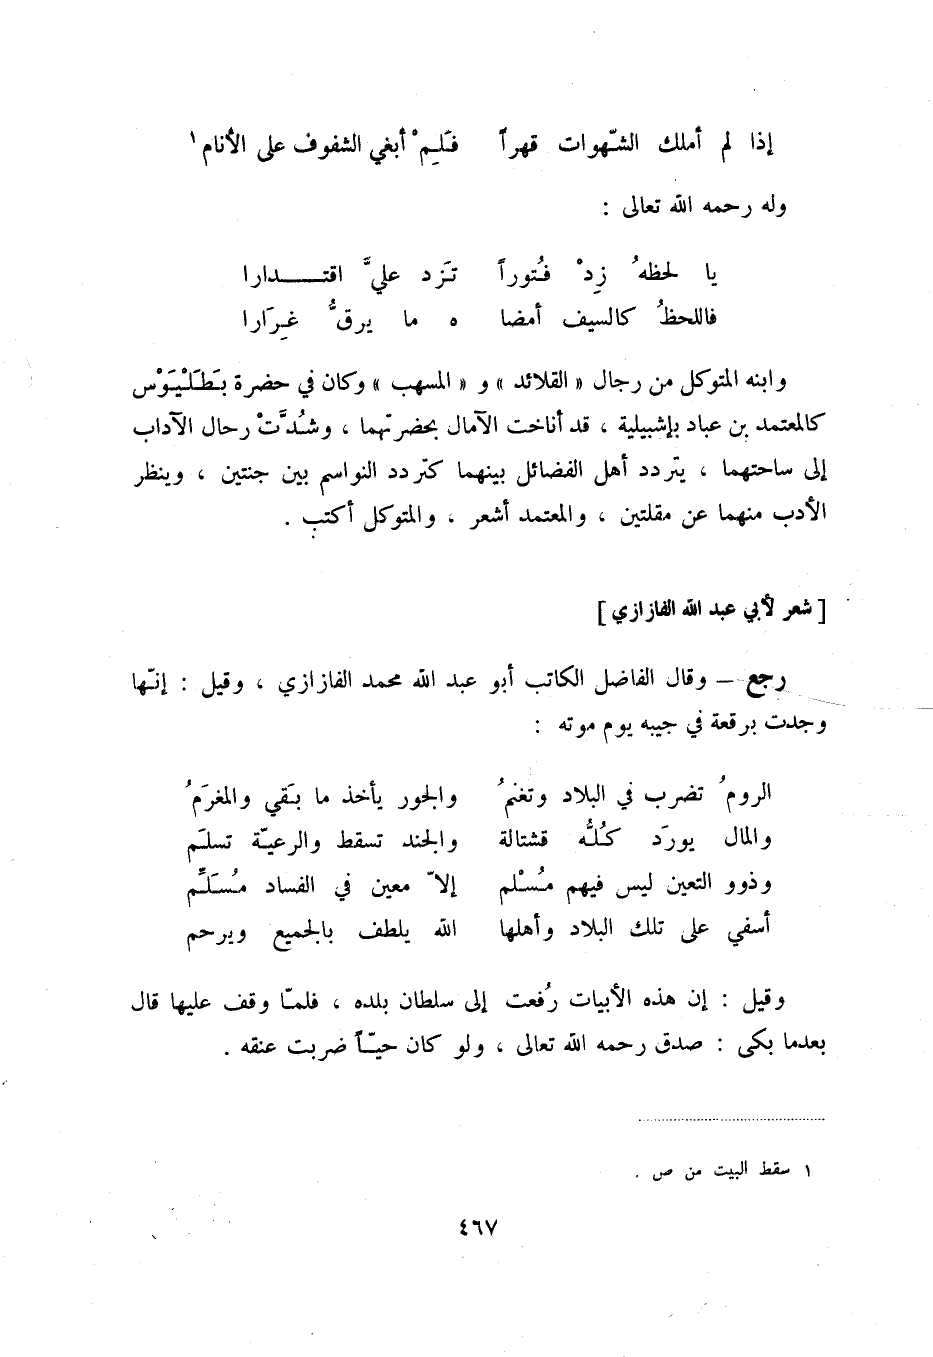 إذا لم أملك الشّهوات قهراً فلِمْ أبغي الشفوف على الأنام ١
وله رحمه الله تعالى :
يا لحظهُ زِدْ فُتوراً تَزد عليَّ اقتـــدارا
فاللحظُ كالسيف أمضا ه ما يرقُّ غِرَارا
وابنه المتوكل من رجال « القلائد » و « المسهب » وكان في حضرة بَطَلْيَوْس
كالمعتمد بن عباد بإشبيلية ، قد أناخت الآمال بحضرتهما ، وشُدَّتْ رحال الآداب
إلى ساحتهما ، يتردد أهل الفضائل بينهما كتردد النواسم بين جنتين ، وينظر
الأدب منهما عن مقلتين ، والمعتمد أشعر ، والمتوكل أكتب .
[ شعر لأبي عبد الله الفازازي ]
رجع – وقال الفاضل الكاتب أبو عبد الله محمد الفازازي ، وقيل : إنّها
وجدت برقعة في جيبه يوم موته :
الرومُ تضرب في البلاد وتغنمُ والجور يأخذ ما بَقي والمغرَمُ
والمال يورَد كلُّه قشتالة والجند تسقط والرعيّة تسلَم
وذوو التعين ليس فيهم مُسْلم إلاّ معين في الفساد مُسَلِّم
أسفي على تلك البلاد وأهلها الله يلطف بالجميع ويرحم
وقيل : إن هذه الأبيات رُفعت إلى سلطان بلده ، فلمّا وقف عليها قال
بعدما بكى : صدق رحمه الله تعالى ، ولو كان حيّاً ضربت عنقه .
١ سقط البيت من ص .
٤٦٧